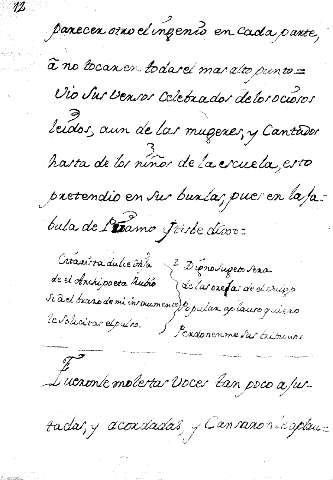 12
parecer otro el ingenio en cada parte,
a no tocar en todas el mas alto punto=
Vio sus versos celebrados de los ociosos
leidos, aun de las mugeres, y Cantados
hasta de los niños de la escuela, esto
pretendio en sus burlas, pues en la fa-
bula de Piramo y Tisbe dixo=
Citarista dulce
de el Archipoeta Rubio
Será el brazo de mi instrumento
le solicitas el pulso.
Digno sugeto sera
de las orejas de el vulgo
Popular aplauso quiero
Perdonenme sus tribunos
Fueronle molestas Voces tan poco a jus-
tadas, y acordadas, y Cansaronle aplau-